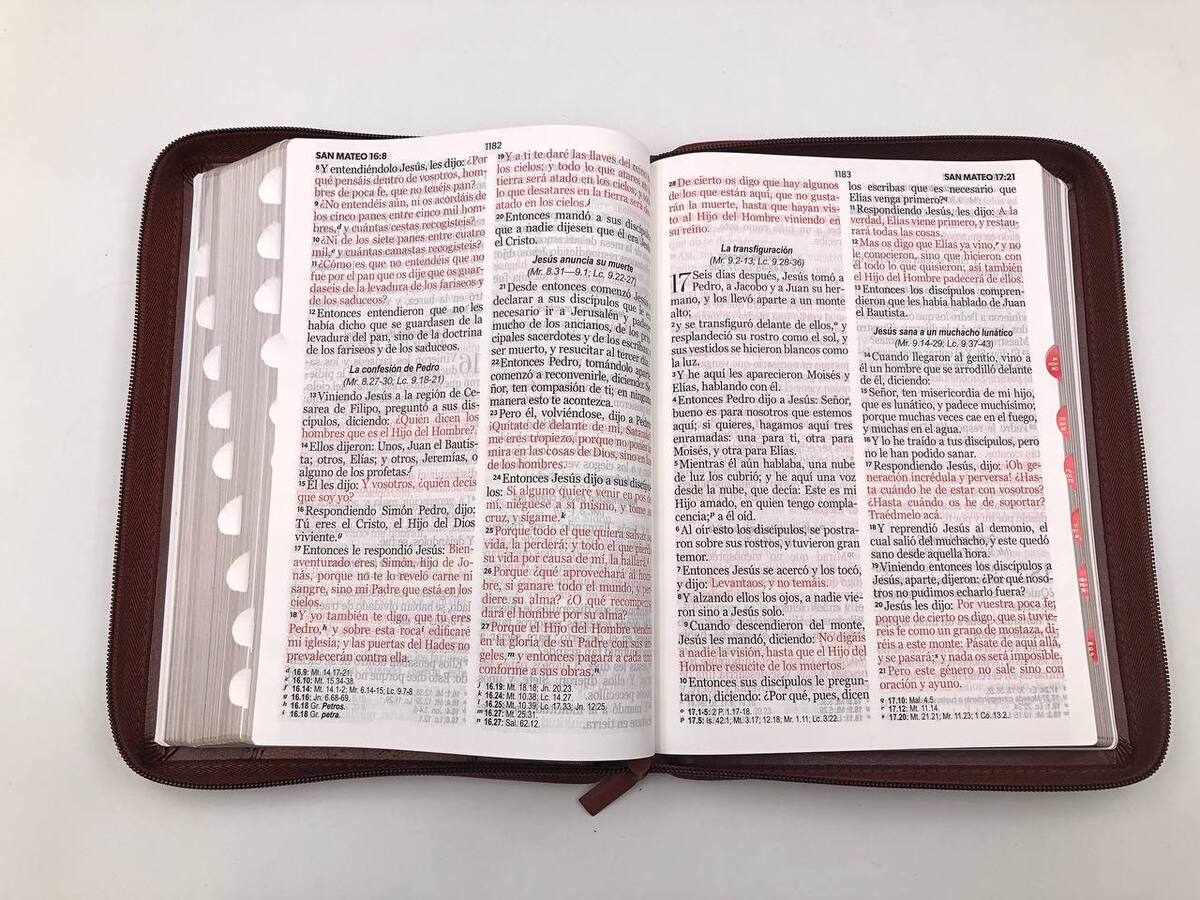 SAN MATEO 16:8
1182
8Y entendiéndolo Jesús, les dijo: ¿Por
qué pensáis dentro de vosotros, hom-
bres de poca fe, que no tenéis pan?
9¿No entendéis aún, ni os acordáis de
los cinco panes entre cinco mil hom-
bres,d y cuántas cestas recogisteis?
10¿Ni de los siete panes entre cuatro
mil,e y cuántas canastas recogisteis?
11¿Cómo es que no entendéis que no
fue por el pan que os dije que os guar-
daseis de la levadura de los fariseos y
de los saduceos?
12Entonces entendieron que no les
había dicho que se guardasen de la
levadura del pan, sino de la doctrina
de los fariseos y de los saduceos.
La confesión de Pedro
(Mr. 8.27-30; Lc. 9.18-21)
13Viniendo Jesús a la región de Ce-
sarea de Filipo, preguntó a sus dis-
cípulos, diciendo: ¿Quién dicen los
hombres que es el Hijo del Hombre?
14Ellos dijeron: Unos, Juan el Bautis-
ta; otros, Elías; y otros, Jeremías, o
alguno de los profetas.f
15Él les dijo: Y vosotros, ¿quién decís
que soy yo?
16Respondiendo Simón Pedro, dijo:
Tú eres el Cristo, el Hijo del Dios
viviente.g
17Entonces le respondió Jesús: Bien-
aventurado eres, Simón, hijo de Jo-
nás, porque no te lo reveló carne ni
sangre, sino mi Padre que está en los
cielos.
18Y yo también te digo, que tú eres
Pedro,h y sobre esta rocai edificaré
mi iglesia; y las puertas del Hades no
prevalecerán contra ella.
d 16.9: Mt. 14.17-21.
16.10: Mt. 15.34-38.
16.14: Mt. 14.1-2; Mr. 6.14-15; Lc. 9.7-8.
16.16: Jn. 6.68-69
16.18 Gr. Petros.
16.18 Gr. petra.
19Y a ti te daré las llaves del reino
los cielos; y todo lo que atares en
tierra será atado en los cielos; y todo
lo que desatares en la tierra será de
atado en los cielos.j
20Entonces mandó a sus discípulos
que a nadie dijesen que él era Jesús
el Cristo.
Jesús anuncia su muerte
(Mr. 8.31—9.1; Lc. 9.22-27)
21Desde entonces comenzó Jesús
declarar a sus discípulos que le
necesario ir a Jerusalén y padecer
mucho de los ancianos, de los prin
cipales sacerdotes y de los escribas
ser muerto, y resucitar al tercer día
22Entonces Pedro, tomándolo aparte
comenzó a reconvenirle, diciendo: Se
ñor, ten compasión de ti; en ninguna
manera esto te acontezca.
23Pero él, volviéndose, dijo a Pedro
¡Quítate de delante de mí, Satanás
me eres tropiezo, porque no pones
mira en las cosas de Dios, sino en
de los hombres.
24Entonces Jesús dijo a sus discípu
los: Si alguno quiere venir en pos de
mí, niéguese a sí mismo, y tome su
cruz, y sígame.k
25Porque todo el que quiera salvar su
vida, la perderá; y todo el que pierda
su vida por causa de mí, la hallará.
26Porque ¿qué aprovechará al hom
bre, si ganare todo el mundo, y per
diere su alma? ¿O qué recompensa
dará el hombre por su alma?
27Porque el Hijo del Hombre vendrá
en la gloria de su Padre con sus án
geles,m y entonces pagará a cada uno
conforme a sus obras.n
16.19: Mt. 18.18; Jn. 20.23.
k 16.24: Mt. 10.38; Lc. 14.27.
16.25: Mt. 10.39; Lc. 17.33; Jn. 12.25.
m 16.27: Mt. 25.31.
n 16.27: Sal. 62.12.
1183
SAN MATEO 17:21
28De cierto os digo que hay algunos
de los que están aquí, que no gusta-
rán la muerte, hasta que hayan vis-
to al Hijo del Hombre viniendo en
su reino.
La transfiguración
(Mr. 9.2-13; Lc. 9.28-36)
17 Seis días después, Jesús tomó a
Pedro, a Jacobo y a Juan su her-
mano, y los llevó aparte a un monte
alto;
2y se transfiguró delante de ellos,o y
resplandeció su rostro como el sol, y
sus vestidos se hicieron blancos como
la luz.
3Y he aquí les aparecieron Moisés y
Elías, hablando con él.
4Entonces Pedro dijo a Jesús: Señor,
bueno es para nosotros que estemos
aquí; si quieres, hagamos aquí tres
enramadas: una para ti, otra para
Moisés, y otra para Elías.
5Mientras él aún hablaba, una nube
de luz los cubrió; y he aquí una voz
desde la nube, que decía: Este es mi
Hijo amado, en quien tengo compla-
cencia;p a él oíd.
6Al oír esto los discípulos, se postra-
ron sobre sus rostros, y tuvieron gran
temor.
7Entonces Jesús se acercó y los tocó,
y dijo: Levantaos, y no temáis.
8Y alzando ellos los ojos, a nadie vie-
ron sino a Jesús solo.
9Cuando descendieron del monte,
Jesús les mandó, diciendo: No digáis
a nadie la visión, hasta que el Hijo del
Hombre resucite de los muertos.
10Entonces sus discípulos le pregun-
taron, diciendo: ¿Por qué, pues, dicen
o 17.1-5: 2 P. 1.17-18.
p 17.5: Is. 42.1; Mt. 3.17; 12.18; Mr. 1.11; Lc. 3.22.
los escribas que es necesario que
Elías venga primero?q
11Respondiendo Jesús, les dijo: A la
verdad, Elías viene primero, y restau-
rará todas las cosas.
12Mas os digo que Elías ya vino,r y no
le conocieron, sino que hicieron con
él todo lo que quisieron; así también
el Hijo del Hombre padecerá de ellos.
13Entonces los discípulos compren-
dieron que les había hablado de Juan
el Bautista.
Jesús sana a un muchacho lunático
(Mr. 9.14-29; Lc. 9.37-43)
14Cuando llegaron al gentío, vino a
él un hombre que se arrodilló delante
de él, diciendo:
15Señor, ten misericordia de mi hijo,
que es lunático, y padece muchísimo;
porque muchas veces cae en el fuego,
y muchas en el agua.
16Y lo he traído a tus discípulos, pero
no le han podido sanar.
17Respondiendo Jesús, dijo: ¡Oh ge-
neración incrédula y perversa! ¿Has-
ta cuándo he de estar con vosotros?
¿Hasta cuándo os he de soportar?
Traédmelo acá.
18Y reprendió Jesús al demonio, el
cual salió del muchacho, y este quedó
sano desde aquella hora.
19Viniendo entonces los discípulos a
Jesús, aparte, dijeron: ¿Por qué noso-
tros no pudimos echarlo fuera?
20Jesús les dijo: Por vuestra poca fe;
porque de cierto os digo, que si tuvie-
reis fe como un grano de mostaza, di-
réis a este monte: Pásate de aquí allá,
y se pasará;s y nada os será imposible.
21Pero este género no sale sino con
oración y ayuno.
q 17.10: Mal. 4.5.
r 17.12: Mt. 11.14.
s 17.20: Mt. 21.21; Mr. 11.23; 1 Co. 13.2.